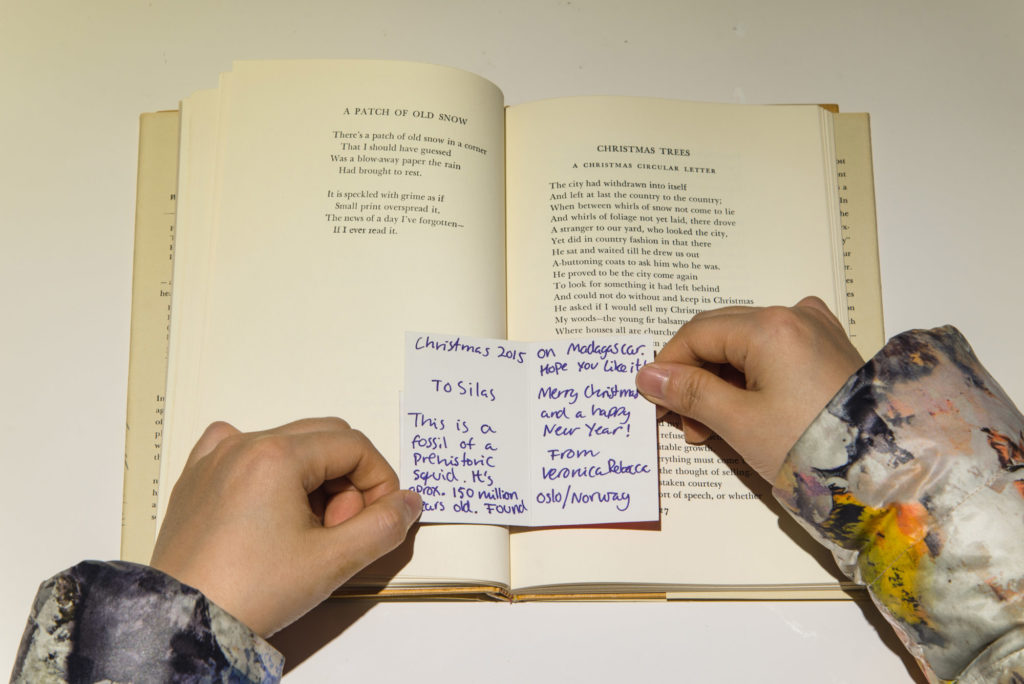 A PATCH OF OLD SNOW
There's a patch of old snow in a corner
That I should have guessed
Was a blow-away paper the rain
Had brought to rest.
It is speckled with grime as if
Small print overspread it,
The news of a day I've forgotten—
If I ever read it.
CHRISTMAS TREES
A CHRISTMAS CIRCULAR LETTER
The city had withdrawn into itself
And left at last the country to the country;
When between whirls of snow not come to lie
And whirls of foliage not yet laid, there drove
A stranger to our yard, who looked the city,
Yet did in country fashion in that there
He sat and waited till he drew us out
A-buttoning coats to ask him who he was.
He proved to be the city come again
To look for something it had left behind
And could not do without and keep its Christmas
He asked if I would sell my Christmas
My woods—the young fir balsams
Where houses all are churches
Christmas 2015
To Silas
This is a
fossil of a
Prehistoric
squid. It's
aprox. 150 million
years old. Found
on Madagascar.
Hope you like it!
Merry Christmas
and a happy
New Year!
From
Veronica Rebecca
Oslo/Norway
refuse
itable growth
everything must come
the thought of selling
staken courtesy
ort of speech, or whether